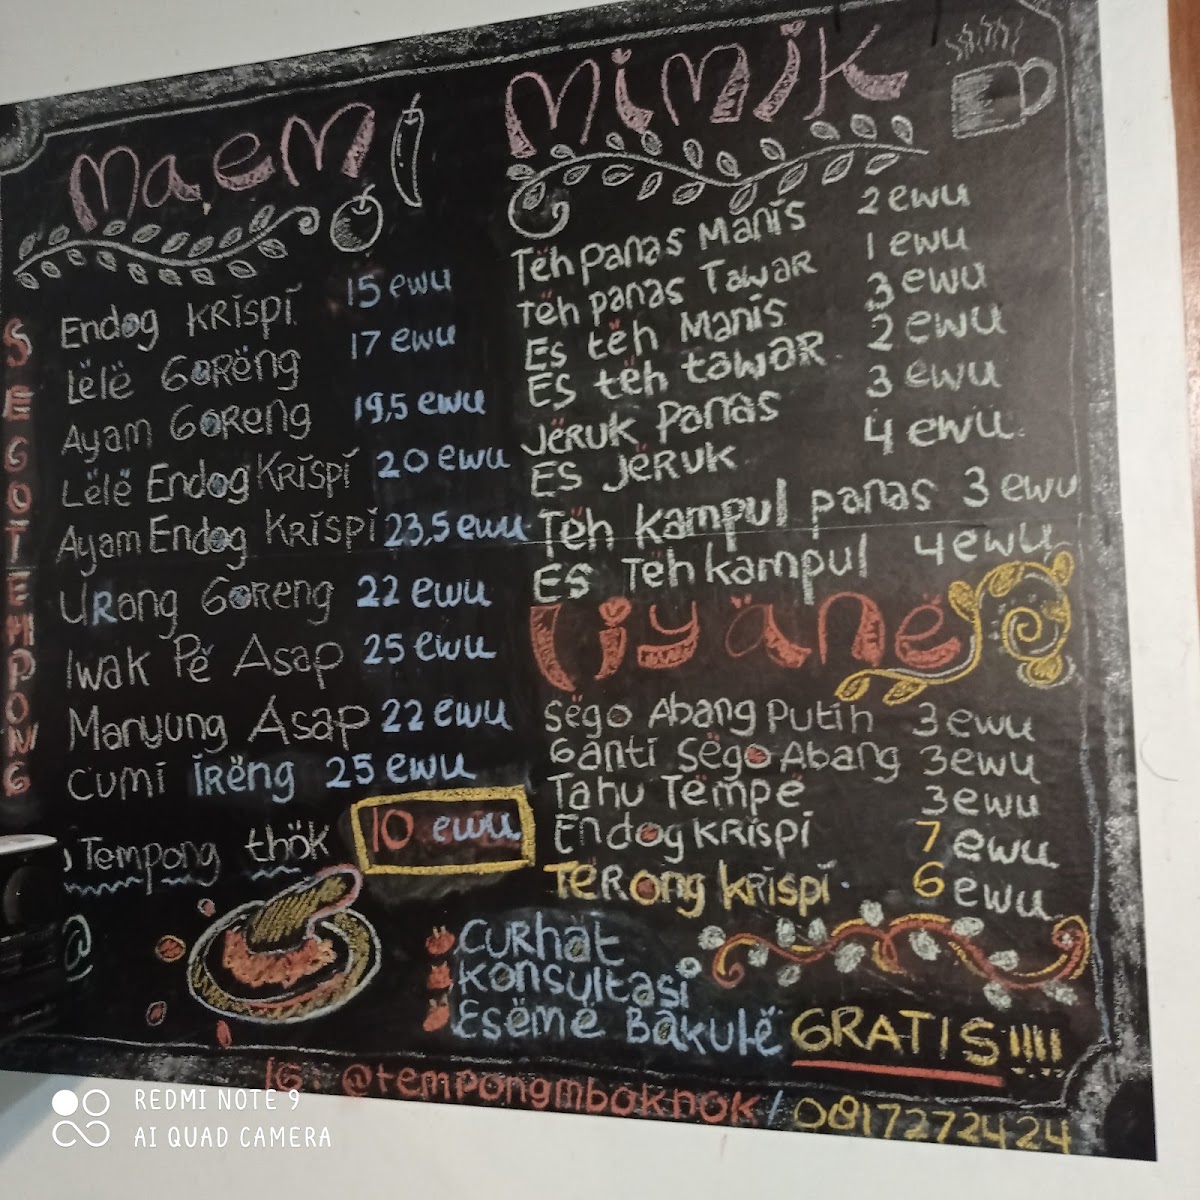 Maem
SEGOTEMPONG
Endog Krispi 15 ewu
Lëlë Gorëng 17 ewu
Ayam Goreng 19,5 ewu
Lëlë Endog Krispi 20 ewu
Ayam Endog Krispi 23,5 ewu
Urang Goreng 22 ewu
Iwak Pë Asap 25 ewu
Manyung Asap 22 ewu
Cumi Irëng 25 ewu
Tempong thök 10 ewu
Mimik
Tëh panas Manis 2 ewu
Tëh panas Tawar 1 ewu
Es tëh Manis 3 ewu
Es tëh tawar 2 ewu
Jëruk Panas 3 ewu
Es Jëruk 4 ewu
Tëh kampul panas 3 ewu
Es Tëh kampul 4 ewu
Liyanë
Sëgo Abang Putih 3 ewu
Ganti Sëgo Abang 3 ewu
Tahu Tëmpë 3 ewu
Endog Krispi 7 ewu
Tërong krispi 6 ewu
Curhat
Konsultasi
Esëmë Bakulë GRATIS!!!!!
IG : @tempongmboknok / 0817272424
REDMI NOTE 9
AI QUAD CAMERA